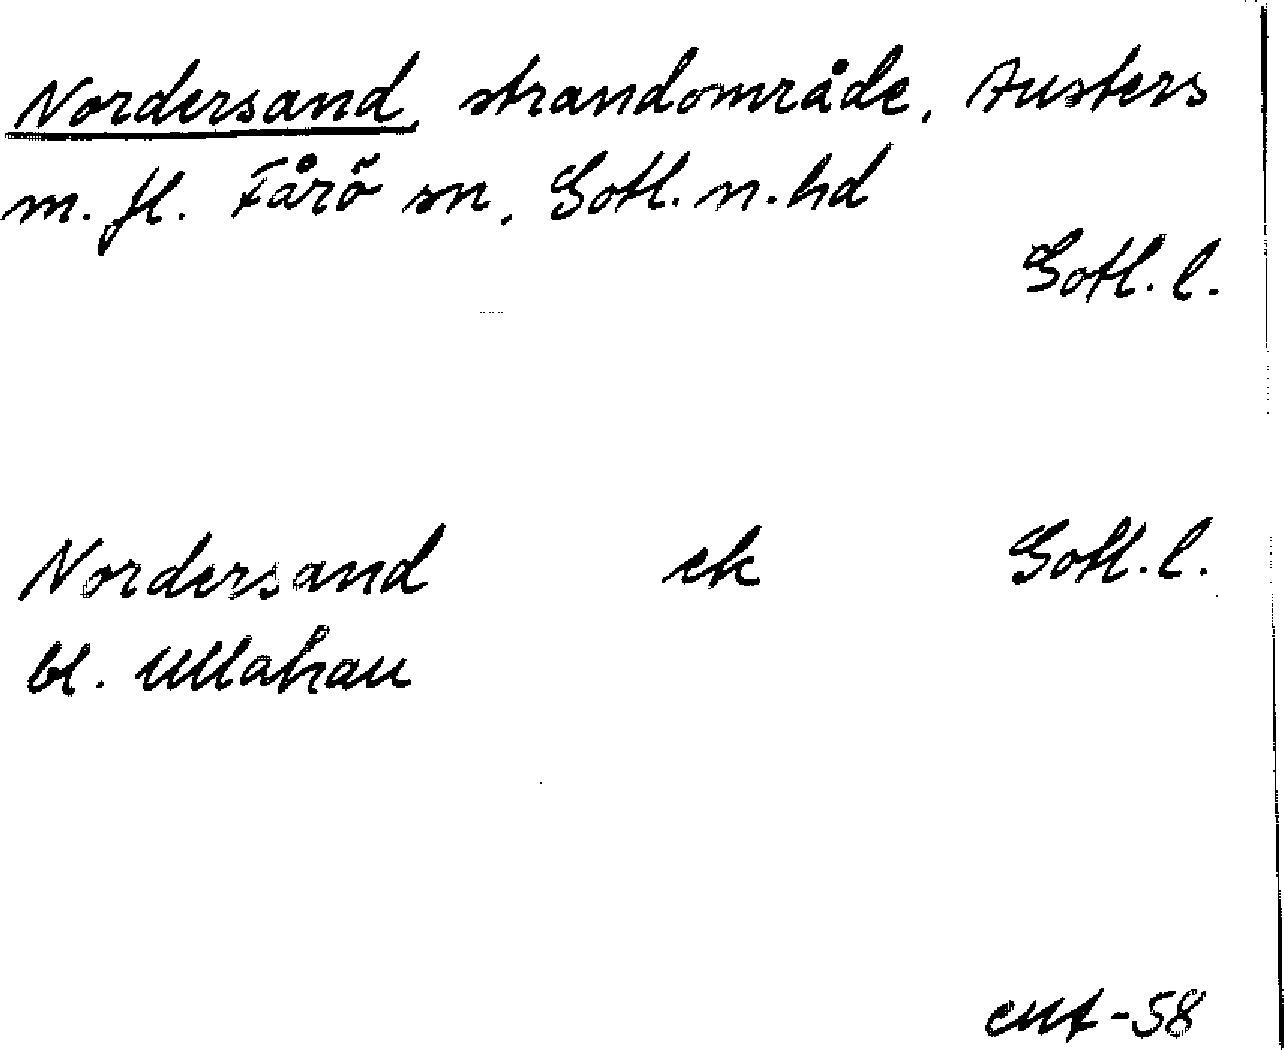 Nordersand, strandområde, Austers
m. fl. Fårö sn, Gotl. n. hd
Gotl. l.
Nordersand ek Gotl. l.
bl. Ullahau
-58